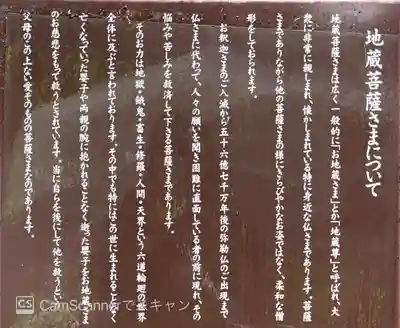 地蔵菩薩さまについて
地蔵菩薩さまは広く一般的に「お地蔵さま」とか「地蔵尊」と呼ばれ、大
衆に非常に親しまれ、懐かしまれている特に身近な仏さまであります。菩薩
さまでありながら他の菩薩さまの様にきらびやかなお姿ではなく、柔和な僧
形をしておられます。
お釈迦さまのご入滅から五十六億七千万年後の弥勒仏のご出現まで
仏さまに代わって、人々の願いを聞き困難に直面している者の前に現れ、その
悩みや苦しみを救済して下さる菩薩さまであります。
そのお力は地獄・餓鬼・畜生・修羅・人間・天界という六道輪廻の世界
全体に及ぶと言われております。その中でも特にはこの世に生まれることなく
亡くなっていった嬰子や両親の腕に抱かれることなく逝った児子をお地蔵さま
のお慈悲をもって救うとされています。当に自らを後にして他を救うとい
父母のこの上ない愛そのものの菩薩さまなのであります。
CS CamScannerでスキャン